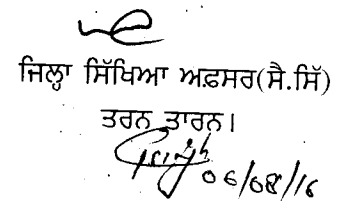 ਜਿਲ੍ਹਾ ਸਿੱਖਿਆ ਅਫ਼ਸਰ(ਸੈ.ਸਿੱ)
ਤਰਨ ਤਾਰਨ।
06/08/16